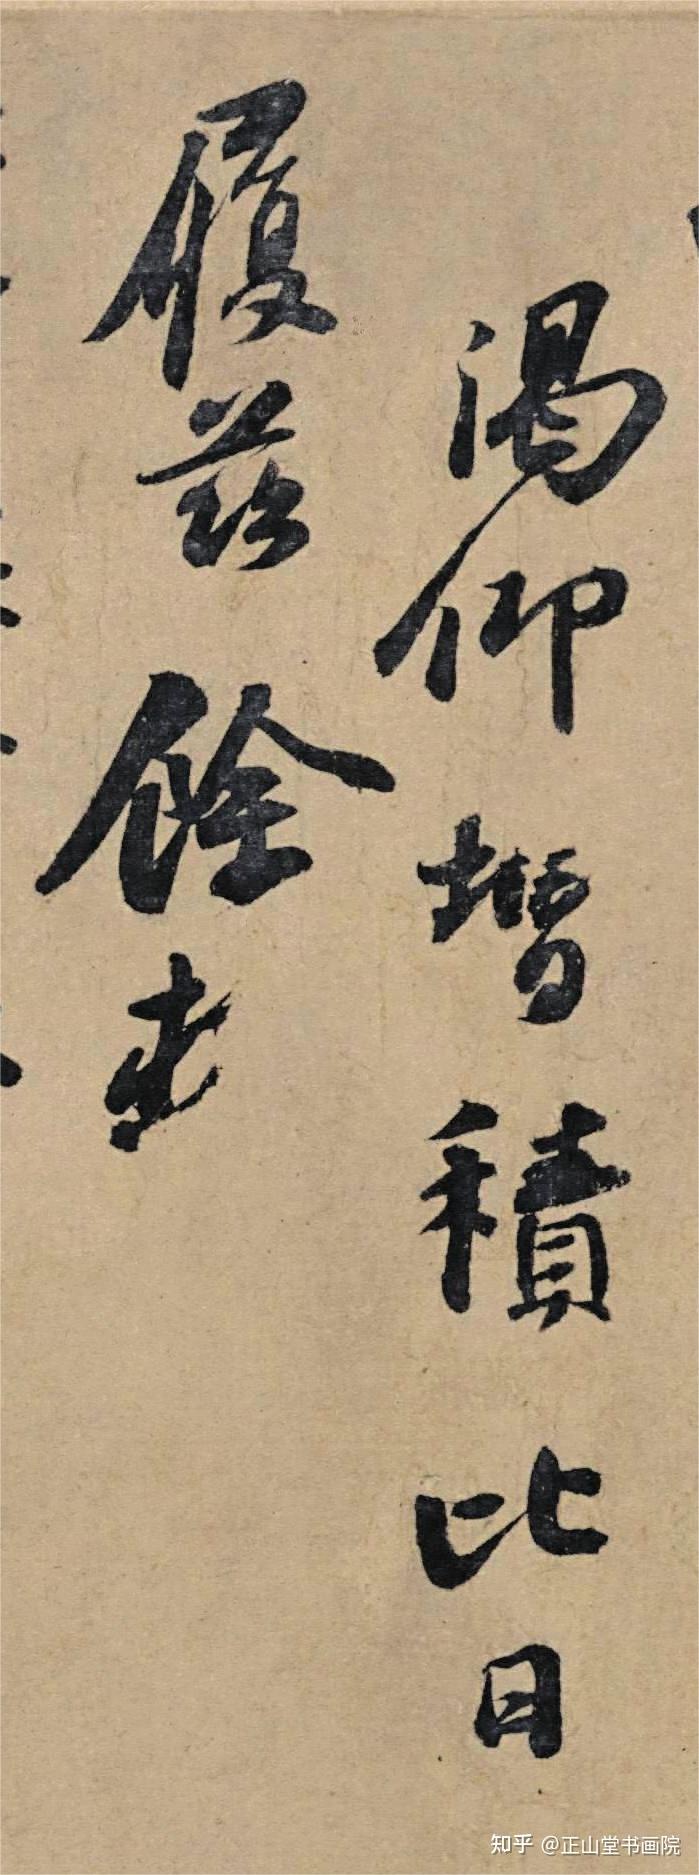 渴仰增積比日
履茲餘
知乎 @正山堂书画院